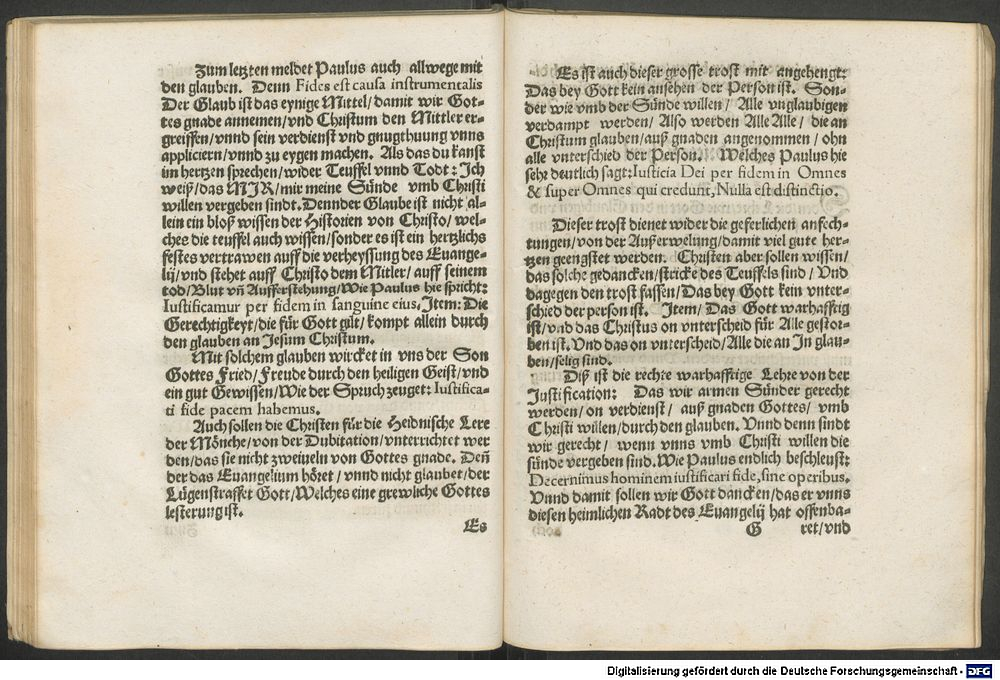 Zum letzten meldet Paulus auch allwege mit
den glauben. Denn Fides est causa instrumentalis
Der Glaub ist das eynige Mittel/damit wir Got-
tes gnade annemen/vnd Christum den Mittler er-
greiffen/vnnd sein verdienst vnd gnugthuung vnns
appliciern/vnnd zu eygen machen. Als das du kanst
im hertzen sprechen/wider Teuffel vnnd Todt: Ich
weiß/das MIR/mir meine Sünde vmb Christi
willen vergeben sindt. Dennder Glaube ist nicht al-
lein ein bloß wissen der Historien von Christo/wel-
ches die teuffel auch wissen/sonder es ist ein hertzlichs
festes vertrawen auff die verheyssung des Euange-
lij/vnd stehet auff Christo dem Mitler/auff seinem
tod/Blut vñ Aufferstehung/Wie Paulus hie spricht:
Iustificamur per fidem in sanguine eius. Item: Die
Gerechtigkeyt/die für Gott gůt/kompt allein durch
den glauben an Jesum Christum.
Mit solchem glauben wircket in vns der Son
Gottes Fried/Freude durch den heiligen Geist/vnd
ein gut Gewissen/Wie der Spruch zeuget: Iustifica-
ti fide pacem habemus.
Auch sollen die Christen für die Heidnische Lere
der Mönche/von der Dubitation/vnterrichtet wer
den/das sie nicht zweiueln von Gottes gnade. Deñ
der das Euangelium höret/vnnd nicht glaubet/der
Lügenstraffet Gott/Welches eine grewliche Gottes
lesterung ist.
Es
Es ist auch dieser grosse trost mit angehengt:
Das bey Gott kein ansehen der Person ist. Son-
der wie vmb der Sünde willen/Alle vnglaubigen
verdampt werden/Also werden Alle Alle/die an
Christum glauben/auß gnaden angenommen/ohn
alle vnterschied der Person. Welches Paulus hie
sehr deutlich sagt: Iusticia Dei per fidem in Omnes
& super Omnes qui credunt, Nulla est distinctio.
Dieser trost dienet wider die geferlichen anfech-
tungen/von der Außerwelung/damit viel gute her-
tzen geengstet werden. Christen aber sollen wissen/
das solche gedancken/stricke des Teuffels sind/Vnd
dagegen den trost fassen/Das bey Gott kein vnter-
schied der person ist. Item/Das Gott warhafftig
ist/vnd das Christus on vnterscheid für Alle gestor-
ben ist. Vnd das on vnterscheid/Alle die an In glau-
ben/selig sind.
Diß ist die rechte warhafftige Lehre von der
Justification: Das wir armen Sünder gerecht
werden/on verdienst/auß gnaden Gottes/vmb
Christi willen/durch den glauben. Vnnd denn sindt
wir gerecht/wenn vnns vmb Christi willen die
sünde vergeben sind. Wie Paulus endlich beschleust:
Decernimus hominem iustificari fide, sine operibus.
Vnnd damit sollen wir Gott dancken/das er vnns
diesen heimlichen Radt des Euangelij hat offenba-
G ret/vnd
Digitalisierung gefördert durch die Deutsche Forschungsgemeinschaft - DFG